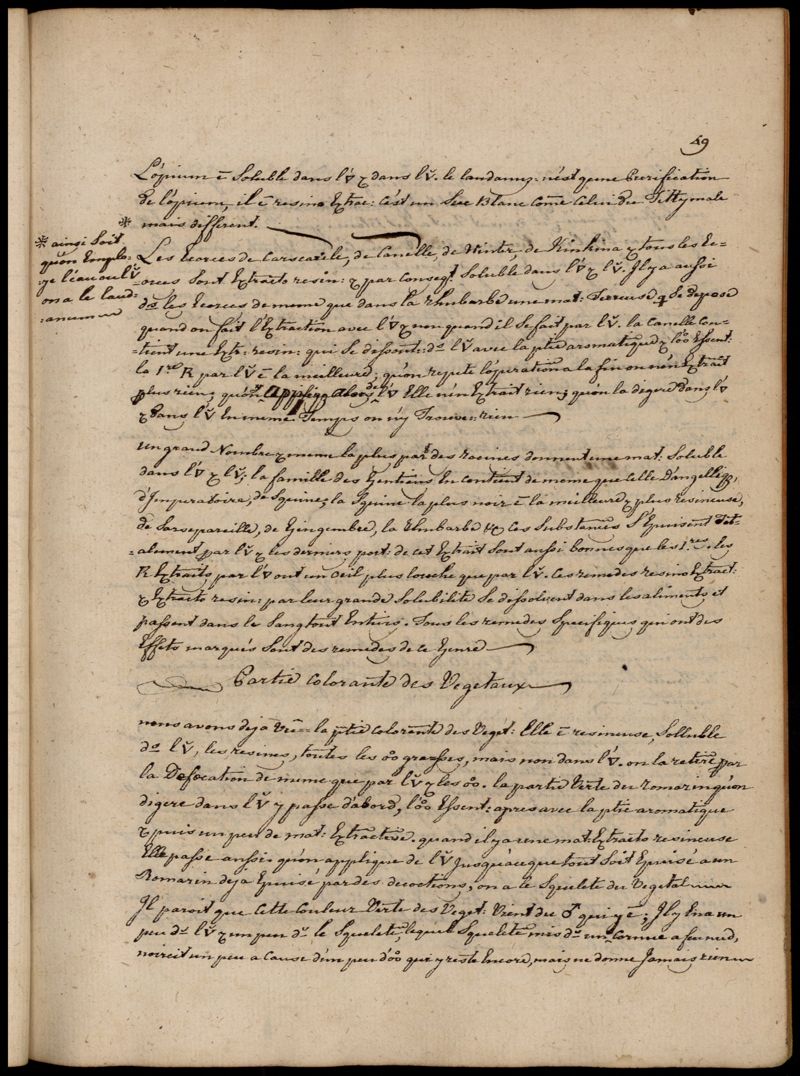 49
L'opium ē Soluble dans l'▽ & dans l'V̆. le laudanum: n'est qu'une Purification
de l'opium, il ē resino Extrac: c'est un Suc Blanc Comē Celui du Tithymale
* mais different.
* ainsi Soit
qu'on Emplo-
ye l'eau ou l'V̆
on a le laud-
:anum
Les Ecorces de Carscarele, de Canelle, de Winter, de Kinkina & tous les Ec-
-orces Sont Extracto resin: & par Conseqt Soluble dans l'▽ & l'V̆. Il y a aussi
ds les Ecorces de meme que dans la rhubarbe une mat: Terreuse q Se depose
quand on fait l'Extraction avec l'▽ & non quand il Se fait par l'V̆. la Canelle Con-
-tient une Extr: resin: qui Se dissout: ds l'V̆ avec la ptie aromatique & l'oo Essent:
la 1re R par l'V̆ ē la meilleure; qu'on repete l'operation a la fin on n'en Extrait
plus rien; qu'on applique alors de l'▽ Elle n'en Extrait rien; qu'on la digere dans l'▽
& dans l'V̆ En meme Temps on n'y Trouve: rien
un grand Nombre & meme la plus part des racines donnent une mat: Soluble
dans l'▽ & l'V̆; la famille des Gentiens En contient de meme que Celle D'angeliq,
d'Imperatoire, de Squine; la Squine la plus noir ē la meilleure & plus resineuse,
de Sarsepareille, de Gingembre, la Rhubarbe &c Ces Substances S'Epuisent Tot-
-alement par l'V̆ & les derniers port: de cet Extrait Sont aussi bonnes que les 1res. les
R Extraits par l'▽ ont un oeil plus louche que par l'V̆. Ces remedes resino Extract:
& Extracto resin: par leur grande Solubilité Se dissolvent dans les aliments et
passent dans le Sang tout Entiers. Tous les remedes Specifiques qui ont des
Effets marqués Sont des remedes de ce Genre
Partie Colorante des Vegetaux
nous avons deja Vu la ptie colorante des Veget: Elle ē resineuse, Solluble
ds l'V̆, les resines, toutes les oo grasses, mais non dans l'▽. on la retire par
la Defecation de meme que par l'V̆ & les oo. la partie Verte du romarin qu'on
digere dans l'V̆ y passe d'abord, l'oo Essent: apres avec la ptie aromatique
& puis un peu de mat: Extractive. quand il y a une mat: Extracto resineuse
Elle passe aussi: qu'on applique de l'V̆ Jusqu'a ce que tout Soit Epuisé a un
Romarin deja Epuisé par des decoctions, on a le Squelete du Vegetal
Il paroit que Cette Couleur Verte des Veget: Vient du ♂ qui y ē; Il y En a un
peu ds l'V̆ & un peu ds le Squelete, lequel Squelete mis ds un Cornue a feu nud,
noircit un peu a Cause d'un peu d'oo qui y reste Encore, mais ne donne Jamais rien